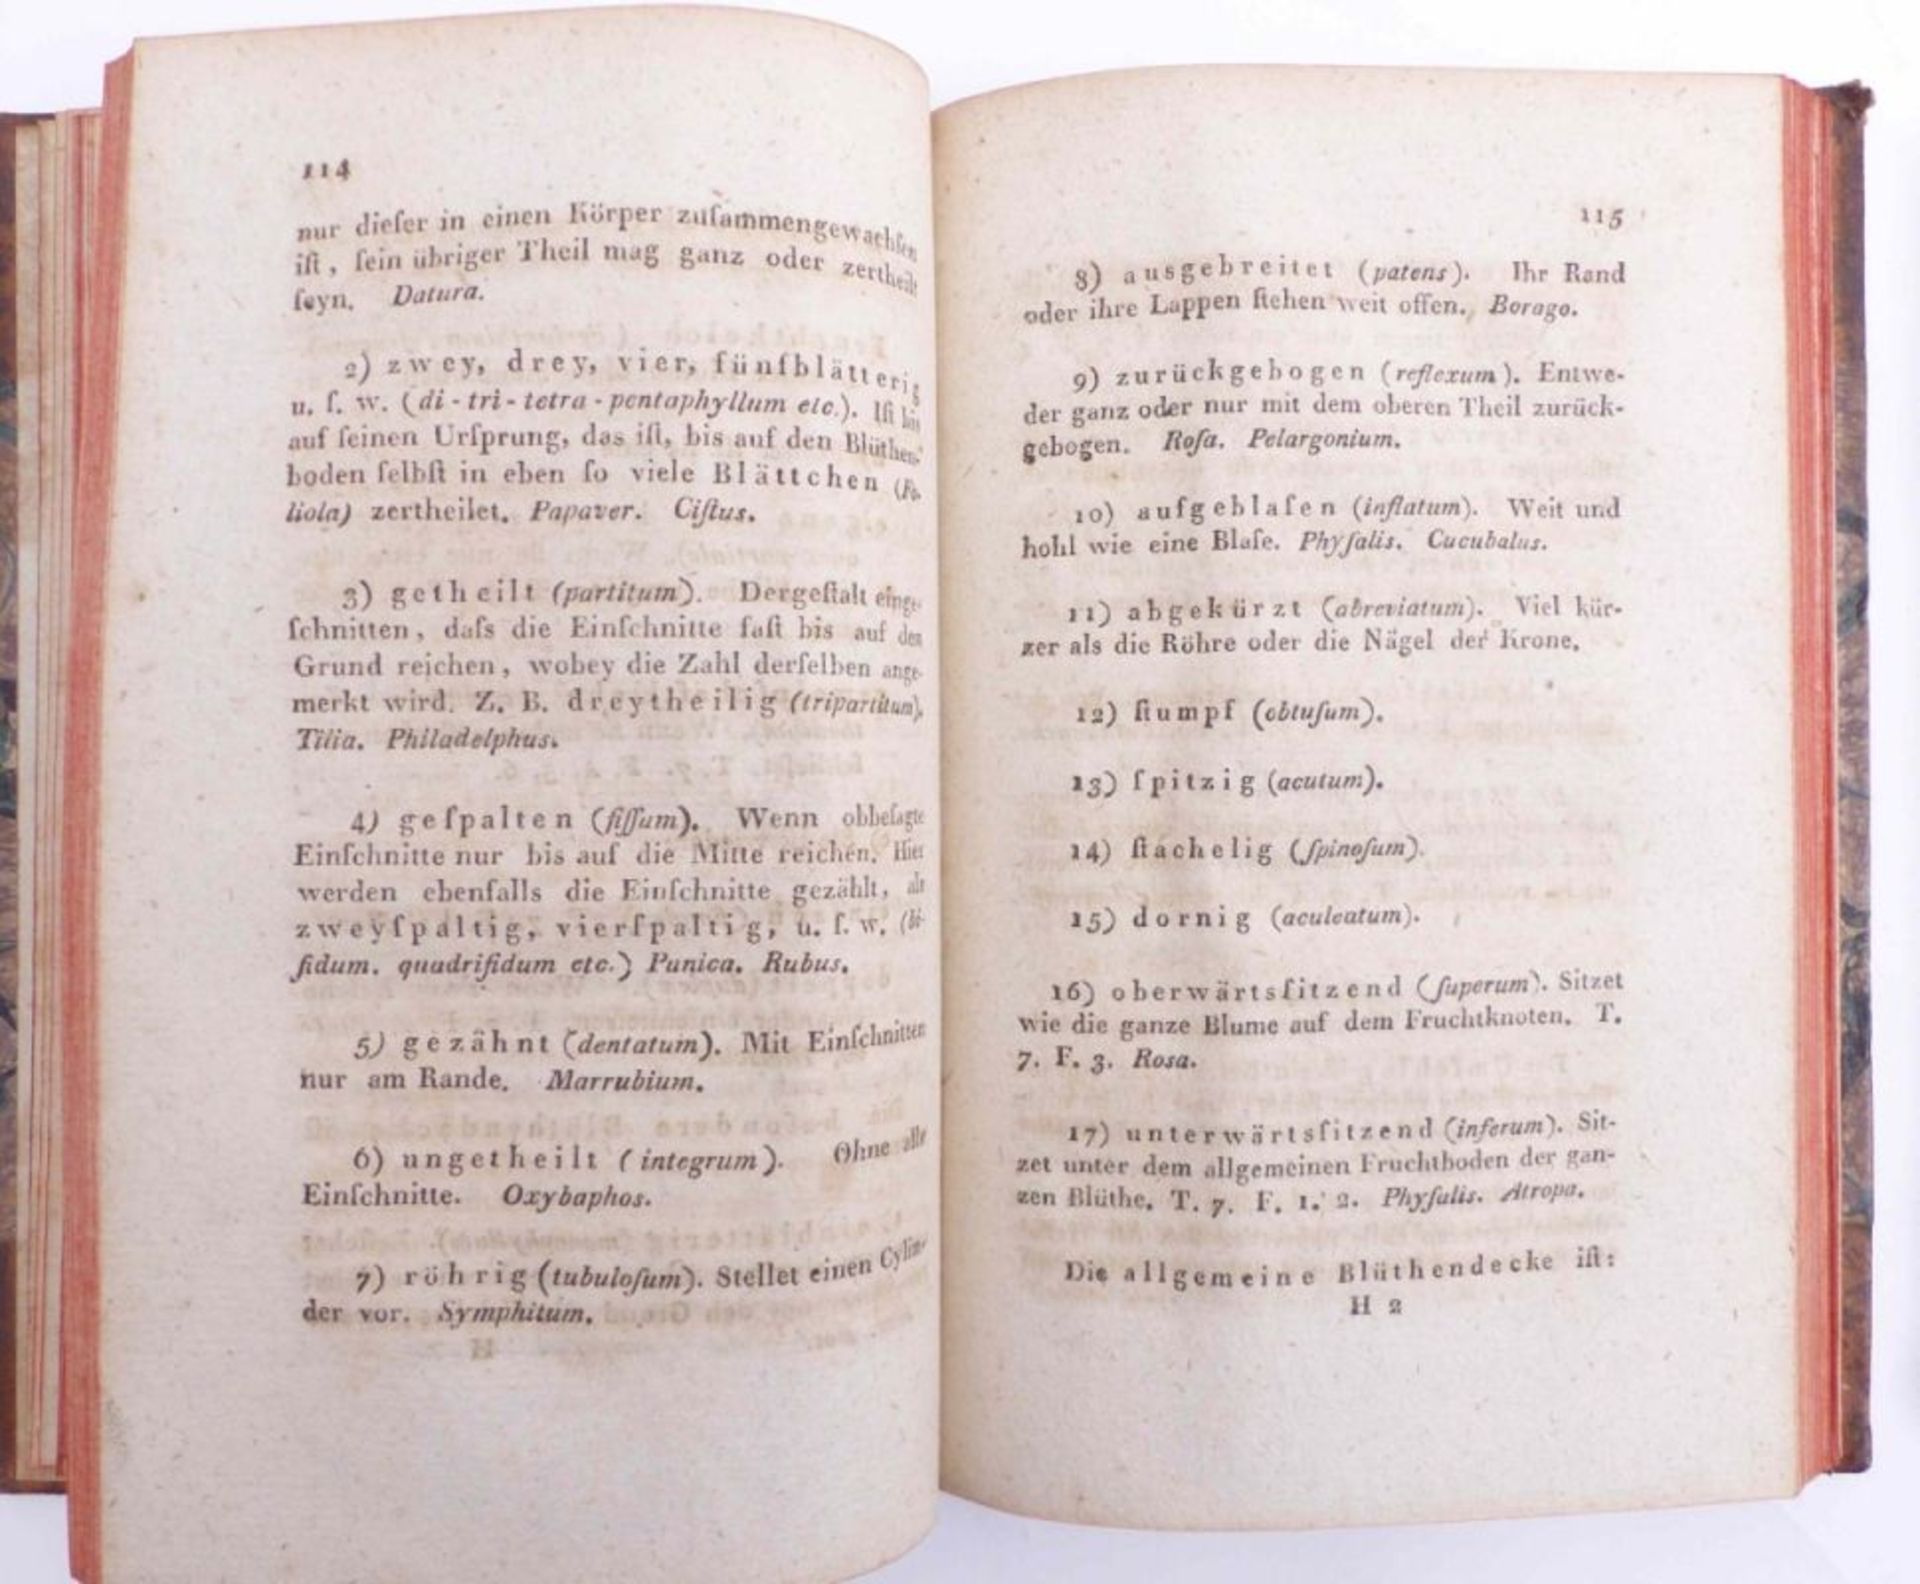 114
nur dieſer in einen Körper zuſammengewachſen
iſt, ſein übriger Theil mag ganz oder zertheilt
ſeyn. Datura.
2) zwey, drey, vier, fünfblätterig
u. ſ. w. (di-tri-tetra-pentaphyllum etc.). Iſt bis
auf ſeinen Urſprung, das iſt, bis auf den Blüthen-
boden ſelbſt in eben ſo viele Blättchen (Fo-
liola) zertheilet. Papaver. Ciſtus.
3) getheilt (partitum). Dergeſtalt einge-
ſchnitten, daſs die Einſchnitte faſt bis auf den
Grund reichen, wobey die Zahl derſelben ange-
merkt wird. Z. B. dreytheilig (tripartitum),
Tilia. Philadelphus.
4) geſpalten (fiſſum). Wenn obbeſagte
Einſchnitte nur bis auf die Mitte reichen. Hier
werden ebenfalls die Einſchnitte gezählt, als
zweyſpaltig, vierſpaltig, u. ſ. w. (bi-
fidum. quadrifidum etc.) Punica. Rubus.
5) gezähnt (dentatum). Mit Einſchnitten
nur am Rande. Marrubium.
6) ungetheilt (integrum). Ohne alle
Einſchnitte. Oxybaphos.
7) röhrig (tubuloſum). Stellet einen Cylin-
der vor. Symphitum.
115
8) ausgebreitet (patens). Ihr Rand
oder ihre Lappen ſtehen weit offen. Borago.
9) zurückgebogen (reflexum). Entwe-
der ganz oder nur mit dem oberen Theil zurück-
gebogen. Roſa. Pelargonium.
10) aufgeblaſen (inflatum). Weit und
hohl wie eine Blaſe. Phyſalis. Cucubalus.
11) abgekürzt (abreviatum). Viel kür-
zer als die Röhre oder die Nägel der Krone.
12) ſtumpf (obtuſum).
13) ſpitzig (acutum).
14) ſtachelig (ſpinoſum).
15) dornig (aculeatum).
16) oberwärtsſitzend (ſuperum). Sitzet
wie die ganze Blume auf dem Fruchtknoten. T.
7. F. 3. Rosa.
17) unterwärtsſitzend (inferum). Sit-
zet unter dem allgemeinen Fruchtboden der gan-
zen Blüthe. T. 7. F. 1. 2. Phyſalis. Atropa.
Die allgemeine Blüthendecke iſt:
H 2